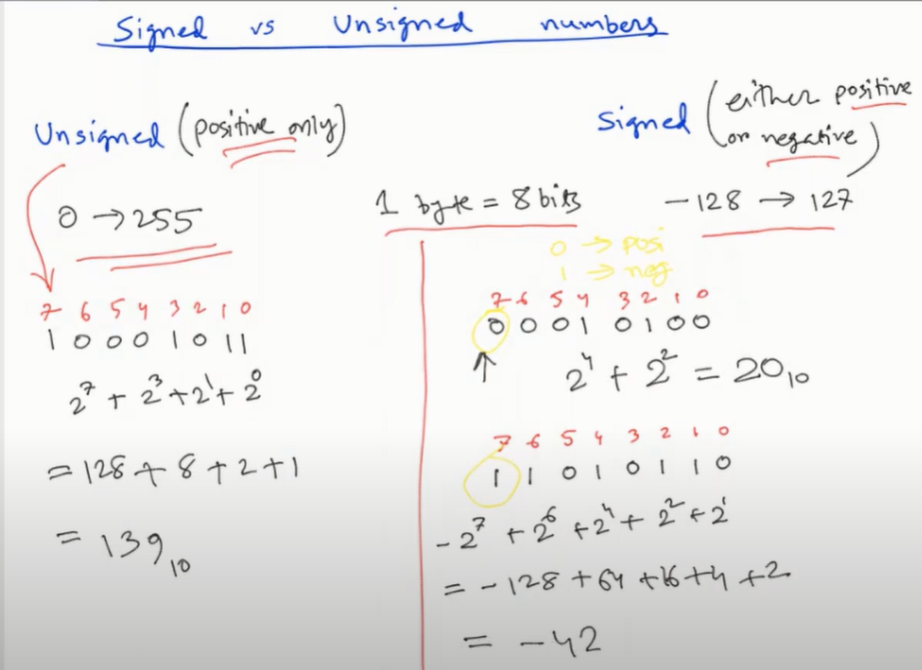 Signed vs Unsigned numbers
Unsigned (positive only)
0 → 255
7 6 5 4 3 2 1 0
1 0 0 0 1 0 1 1
2⁷ + 2³ + 2¹ + 2⁰
= 128 + 8 + 2 + 1
= 139₁₀
1 byte = 8 bits
Signed (either positive
or negative)
-128 → 127
0 → posi
1 → neg
7 6 5 4 3 2 1 0
0 0 0 1 0 1 0 0
2⁴ + 2² = 20₁₀
7 6 5 4 3 2 1 0
1 1 0 1 0 1 1 0
-2⁷ + 2⁶ + 2⁴ + 2² + 2¹
= -128 + 64 + 16 + 4 + 2
= -42